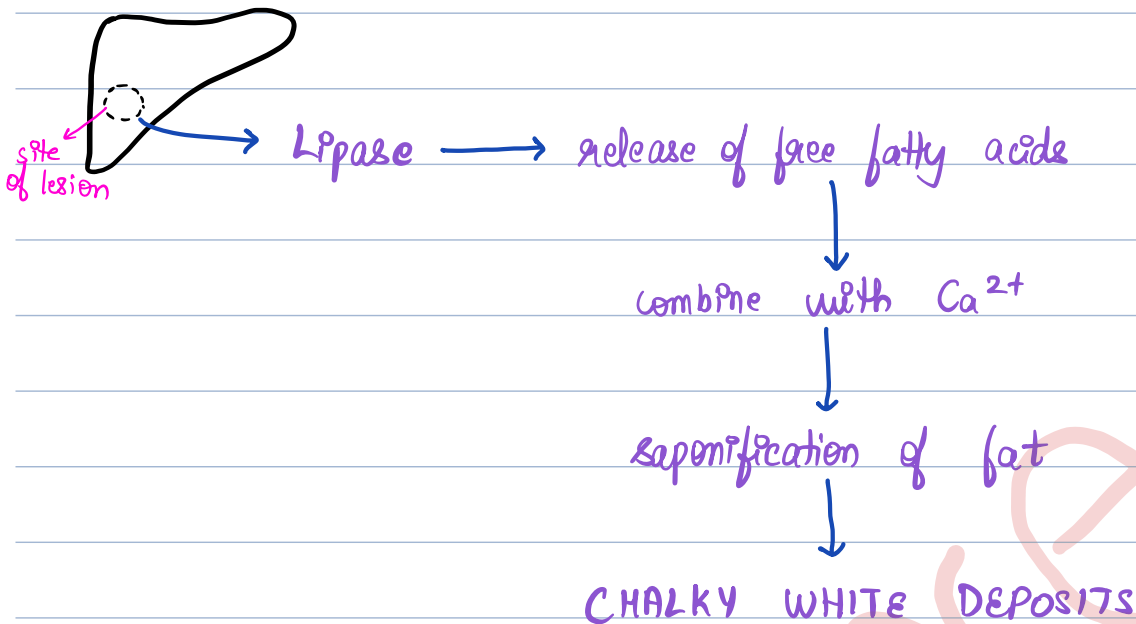 site
of lesion
Lipase → release of free fatty acids
combine with Ca²⁺
saponification of fat
CHALKY WHITE DEPOSITS